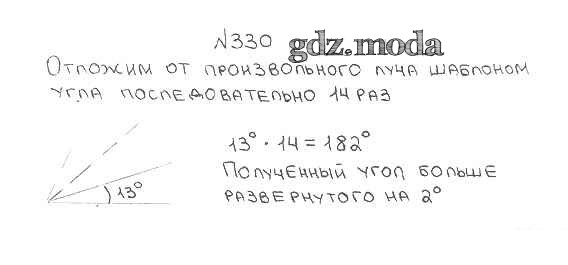 №330 gdz.moda
Отложим от произвольного луча шаблоном
угла последовательно 14 раз
13° · 14 = 182°
Полученный угол больше
развернутого на 2°
13°